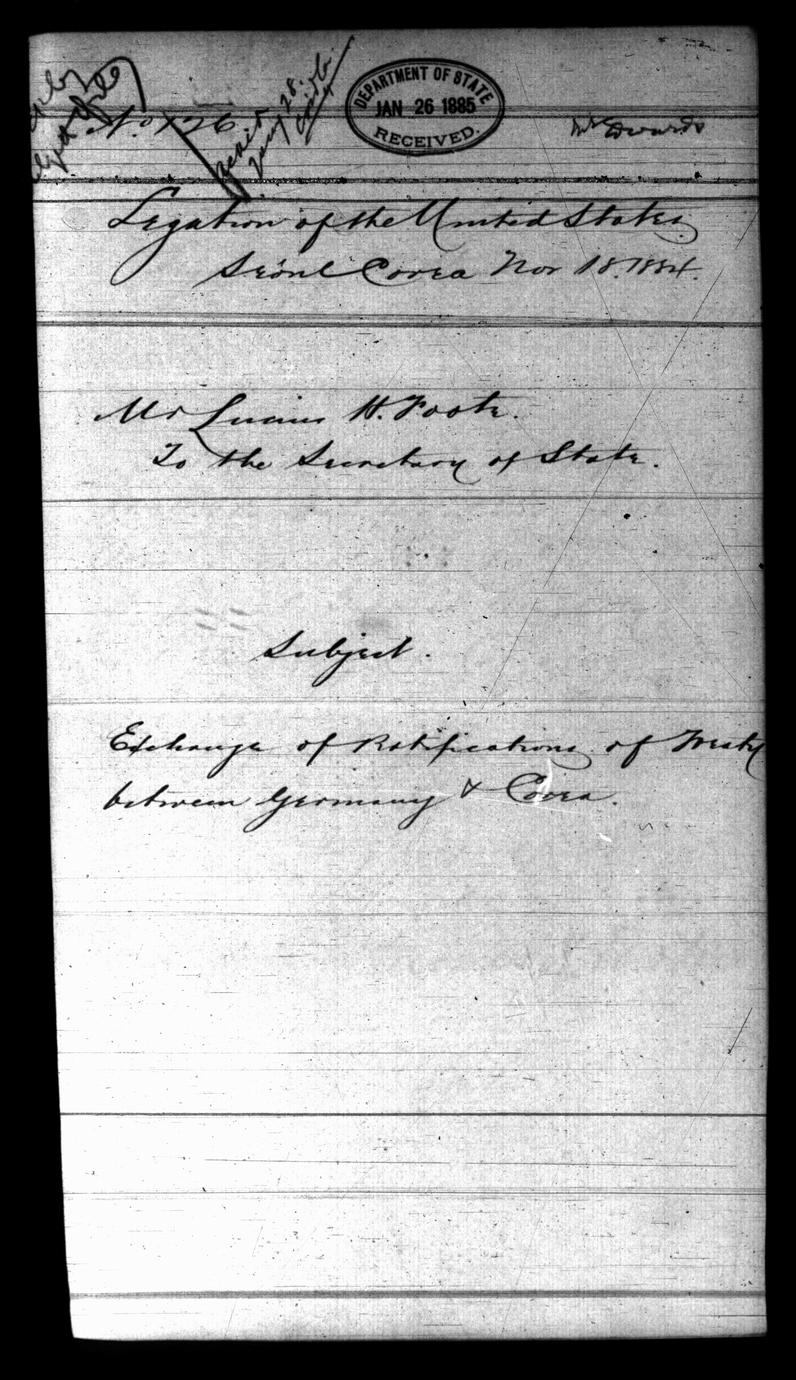 No 126
DEPARTMENT OF STATE
JAN 26 1885
RECEIVED.
Mr Edwards
Legation of the United States.
Seoul Corea Nov 18. 1884.
Mr Lucius H. Foote.
To the Secretary of State.
Subject.
Exchange of Ratifications of Treaty
between Germany & Corea.